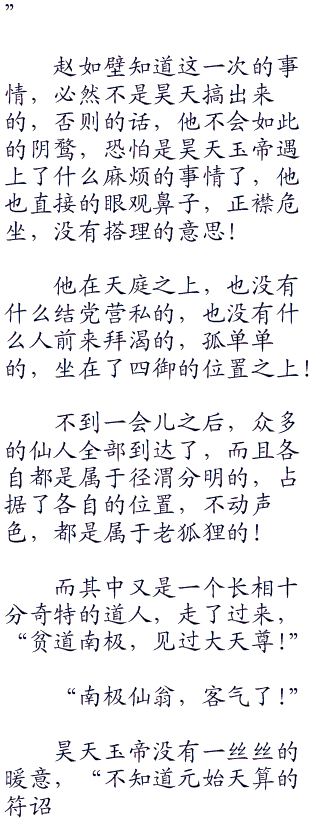 ”
赵如壁知道这一次的事
情，必然不是昊天搞出来
的，否则的话，他不会如此
的阴鹜，恐怕是昊天玉帝遇
上了什么麻烦的事情了，他
也直接的眼观鼻子，正襟危
坐，没有搭理的意思！
他在天庭之上，也没有
什么结党营私的，也没有什
么人前来拜渴的，孤单单
的，坐在了四御的位置之上！
不到一会儿之后，众多
的仙人全部到达了，而且各
自都是属于径渭分明的，占
据了各自的位置，不动声
色，都是属于老狐狸的！
而其中又是一个长相十
分奇特的道人，走了过来，
“贫道南极，见过大天尊！”
“南极仙翁，客气了！”
昊天玉帝没有一丝丝的
暖意，“不知道元始天算的
符诏